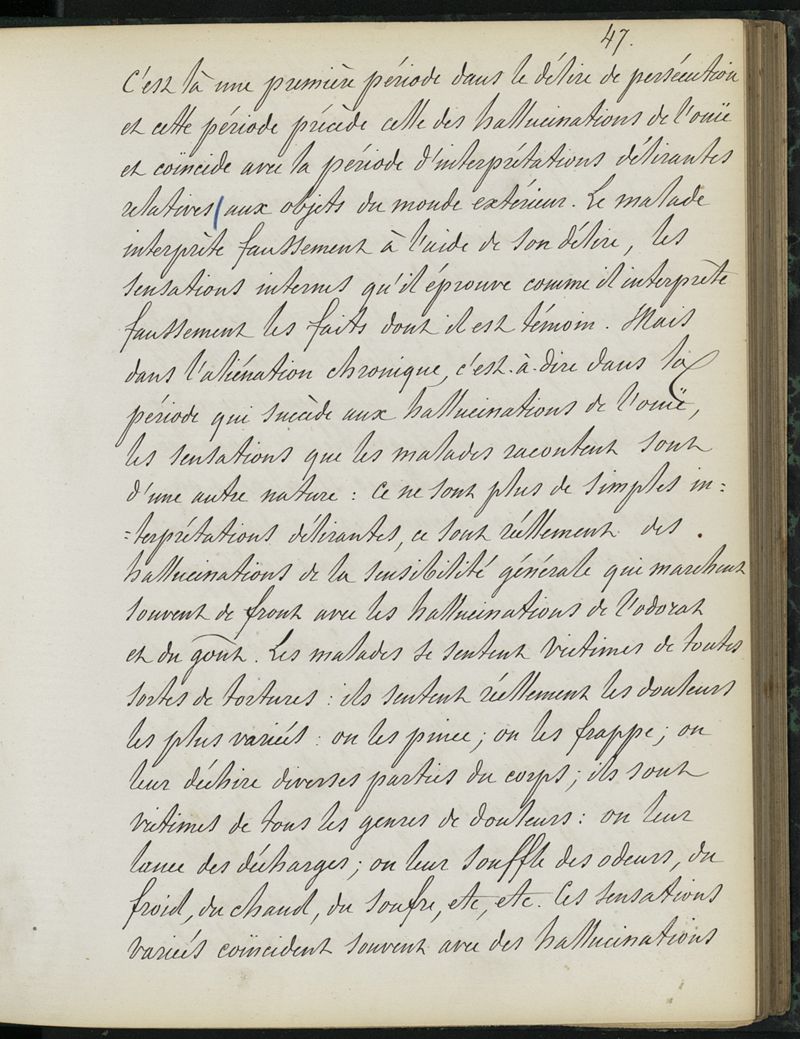 47.
C'est là une première période dans le délire de persécution
et cette période précède celle des hallucinations de l'ouïe
et coïncide avec la période d'interprétations délirantes
relatives aux objets du monde extérieur. Le malade
interprète faussement à l'aide de son délire, les
sensations internes qu'il éprouve comme il interprète
faussement les faits dont il est témoin. Mais
dans l'aliénation chronique, c'est-à-dire dans la
période qui succède aux hallucinations de l'ouïe,
les sensations que les malades racontent sont
d'une autre nature : ce ne sont plus de simples in=
=terprétations délirantes, ce sont réellement des
hallucinations de la sensibilité générale qui marchent
souvent de front avec les hallucinations de l'odorat
et du goût. Les malades se sentent victimes de toutes
sortes de tortures : ils sentent réellement les douleurs
les plus variées : on les pince ; on les frappe ; on
leur déchire diverses parties du corps ; ils sont
victimes de tous les genres de douleurs : on leur
lance des décharges ; on leur souffle des odeurs, du
froid, du chaud, du soufre, etc, etc. Ces sensations
variées coïncident souvent avec des hallucinations